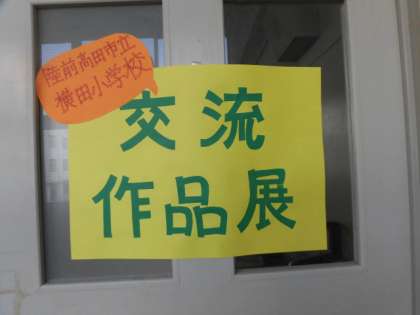 陸前高田市立
横田小学校
交流
作品展